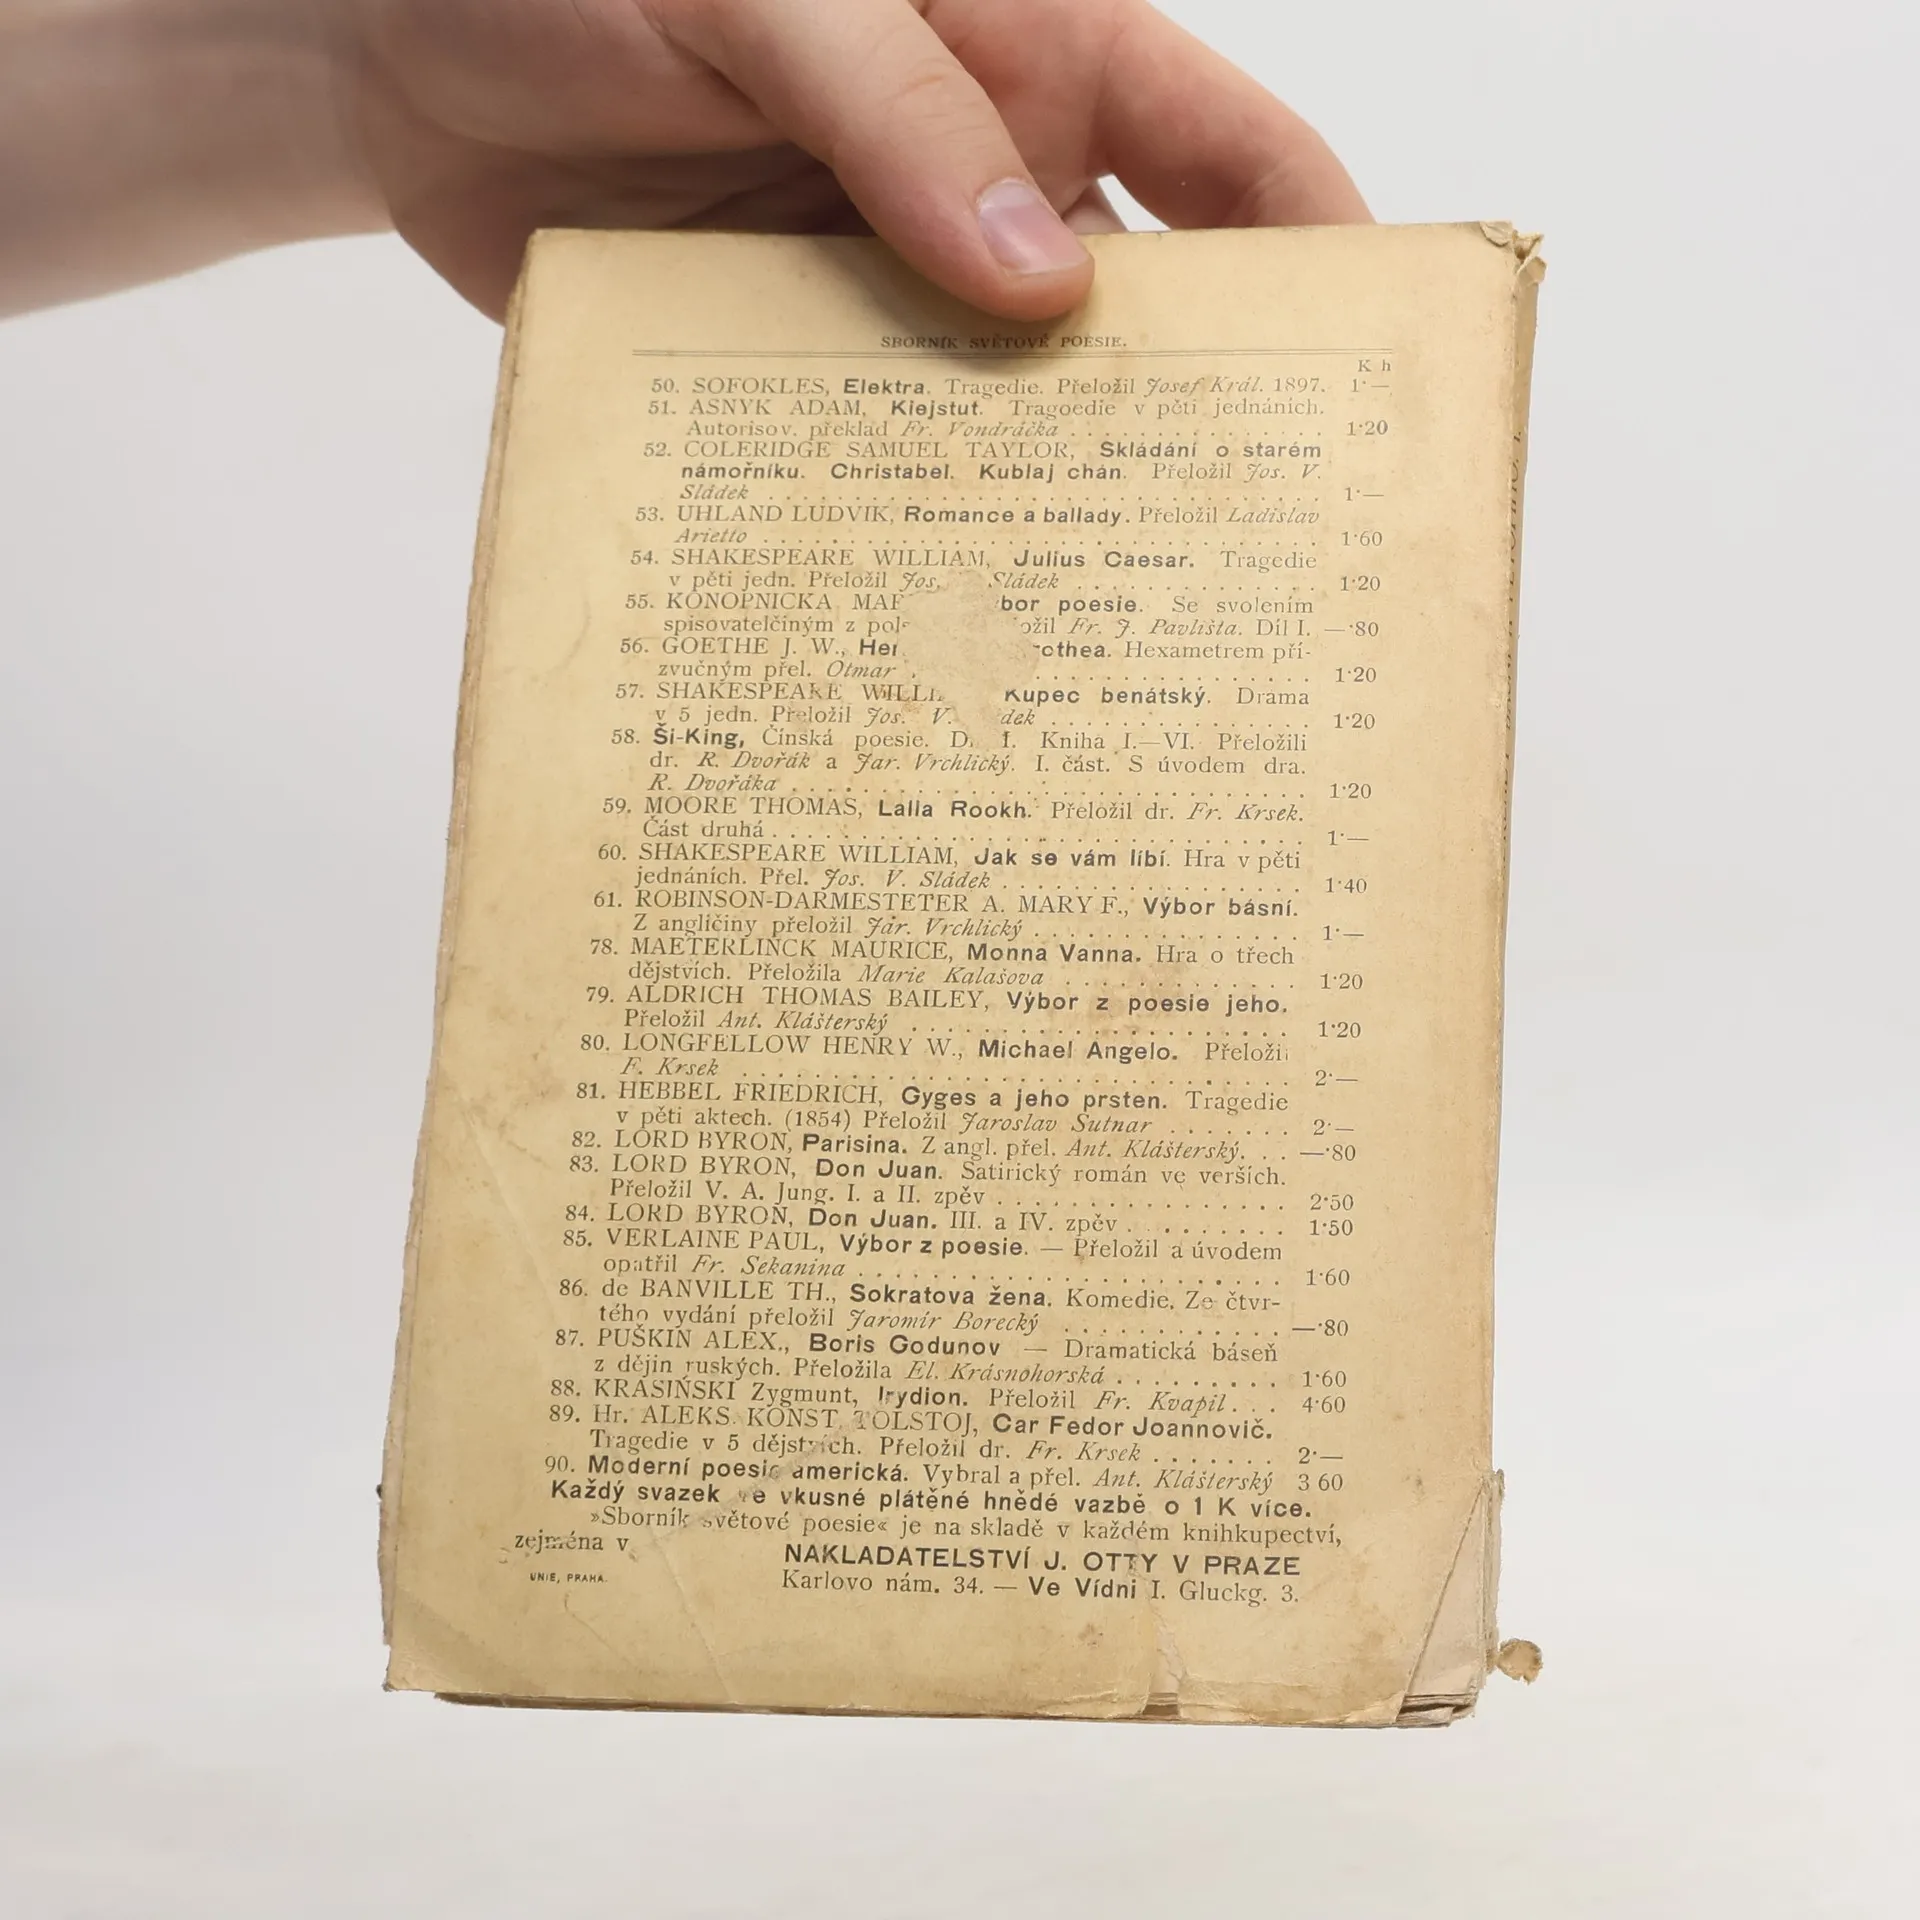 SBORNÍK SVĚTOVÉ POESIE.
K h
50. SOFOKLES, Elektra. Tragedie. Přeložil Josef Král. 1897. 1·—
51. ASNYK ADAM, Kiejstut. Tragoedie v pěti jednáních.
Autorisov. překlad Fr. Vondráčka . . . . . . . . . . . . . . . 1·20
52. COLERIDGE SAMUEL TAYLOR, Skládání o starém
námořníku. Christabel. Kublaj chán. Přeložil Jos. V.
Sládek . . . . . . . . . . . . . . . . . . . . . . . . . . . . 1·—
53. UHLAND LUDVIK, Romance a ballady. Přeložil Ladislav
Arietto . . . . . . . . . . . . . . . . . . . . . . . . . . . . 1·60
54. SHAKESPEARE WILLIAM, Julius Caesar. Tragedie
v pěti jedn. Přeložil Jos. Sládek . . . . . . . . . . . . . 1·20
55. KONOPNICKA MAR bor poesie. Se svolením
spisovatelčiným z pol ožil Fr. J. Pavlišta. Díl I. —·80
56. GOETHE J. W., Her othea. Hexametrem pří-
zvučným přel. Otmar . . . . . . . . . . . . . . . 1·20
57. SHAKESPEARE WILLI Kupec benátský. Drama
v 5 jedn. Přeložil Jos. V. dek . . . . . . . . . . . . . . 1·20
58. Ši-King, Čínská poesie. D I. Kniha I.—VI. Přeložili
dr. R. Dvořák a Jar. Vrchlický. I. část. S úvodem dra.
R. Dvořáka . . . . . . . . . . . . . . . . . . . . . . . . . . 1·20
59. MOORE THOMAS, Lalla Rookh. Přeložil dr. Fr. Krsek.
Část druhá . . . . . . . . . . . . . . . . . . . . . . . . . . 1·—
60. SHAKESPEARE WILLIAM, Jak se vám líbí. Hra v pěti
jednáních. Přel. Jos. V. Sládek . . . . . . . . . . . . . . . 1·40
61. ROBINSON-DARMESTETER A. MARY F., Výbor básní.
Z angličiny přeložil Jar. Vrchlický . . . . . . . . . . . . . 1·—
78. MAETERLINCK MAURICE, Monna Vanna. Hra o třech
dějstvích. Přeložila Marie Kalašova . . . . . . . . . . . . 1·20
79. ALDRICH THOMAS BAILEY, Výbor z poesie jeho.
Přeložil Ant. Klášterský . . . . . . . . . . . . . . . . . . . 1·20
80. LONGFELLOW HENRY W., Michael Angelo. Přeložil
F. Krsek . . . . . . . . . . . . . . . . . . . . . . . . . . . 2·—
81. HEBBEL FRIEDRICH, Gyges a jeho prsten. Tragedie
v pěti aktech. (1854) Přeložil Jaroslav Sutnar . . . . . . . 2·—
82. LORD BYRON, Parisina. Z angl. přel. Ant. Klášterský. . . —·80
83. LORD BYRON, Don Juan. Satirický román ve verších.
Přeložil V. A. Jung. I. a II. zpěv . . . . . . . . . . . . . . . 2·50
84. LORD BYRON, Don Juan. III. a IV. zpěv . . . . . . . . 1·50
85. VERLAINE PAUL, Výbor z poesie. — Přeložil a úvodem
opatřil Fr. Sekanina . . . . . . . . . . . . . . . . . . . . . . 1·60
86. de BANVILLE TH., Sokratova žena. Komedie. Ze čtvr-
tého vydání přeložil Jaromír Borecký . . . . . . . . . . . —·80
87. PUŠKIN ALEX., Boris Godunov — Dramatická báseň
z dějin ruských. Přeložila El. Krásnohorská . . . . . . . . . 1·60
88. KRASIŃSKI Zygmunt, Irydion. Přeložil Fr. Kvapil . . . 4·60
89. Hr. ALEKS. KONST. TOLSTOJ, Car Fedor Joannovič.
Tragedie v 5 dějstvích. Přeložil dr. Fr. Krsek . . . . . . . 2·—
90. Moderní poesie americká. Vybral a přel. Ant. Klášterský 3 60
Každý svazek ve vkusné plátěné hnědé vazbě o 1 K více.
»Sborník světové poesie« je na skladě v každém knihkupectví,
zejména v
NAKLADATELSTVÍ J. OTTY V PRAZE
UNIE, PRAHA.
Karlovo nám. 34. — Ve Vídni I. Gluckg. 3.